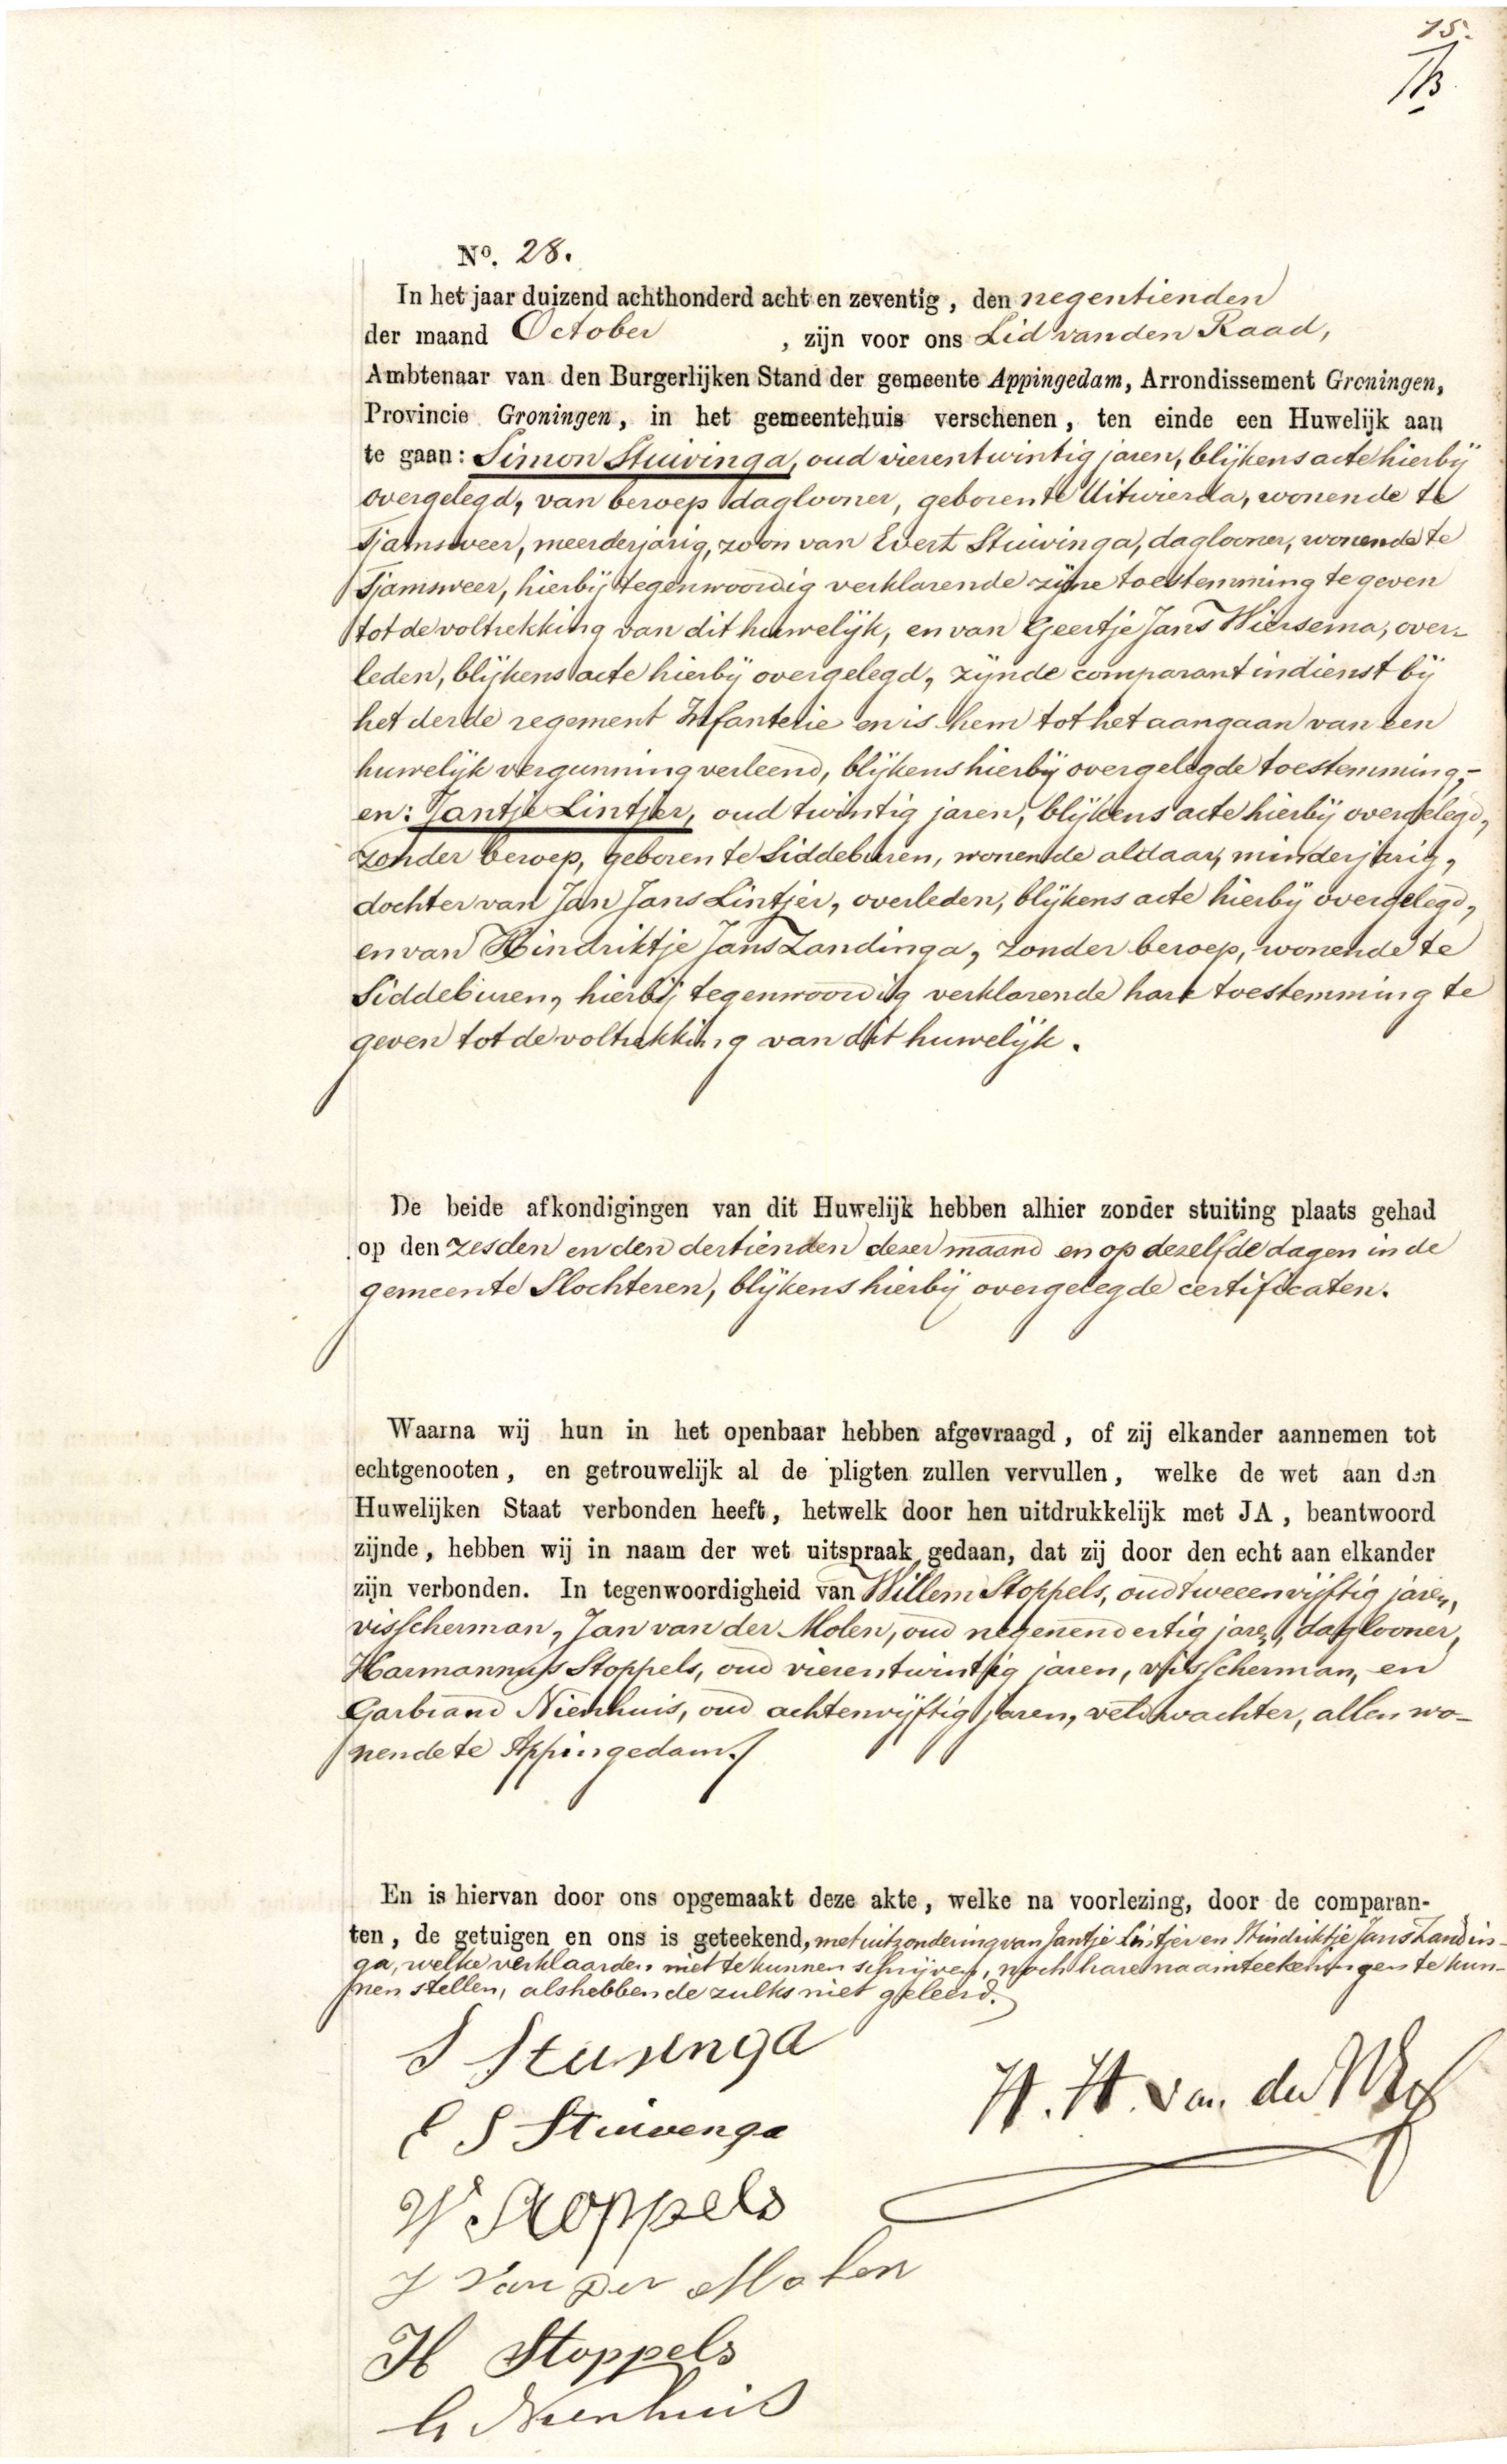 15.
No. 28.
In het jaar duizend achthonderd acht en zeventig, den negentienden
der maand October, zijn voor ons Lid van den Raad,
Ambtenaar van den Burgerlijken Stand der gemeente Appingedam, Arrondissement Groningen,
Provincie Groningen, in het gemeentehuis verschenen, ten einde een Huwelijk aan
te gaan: Simon Stuivinga, oud vierentwintig jaren, blijkens acte hierbij
overgelegd, van beroep daglooner, geboren te Uitwierda, wonende te
Tjamsweer, meerderjarig, zoon van Evert Stuivinga, daglooner, wonende te
Tjamsweer, hierbij tegenwoordig verklarende zijne toestemming te geven
tot de voltrekking van dit huwelijk, en van Geertje Jans Wiersema, over-
leden, blijkens acte hierbij overgelegd, zijnde comparant in dienst bij
het derde regement Infanterie en is hem tot het aangaan van een
huwelijk vergunning verleend, blijkens hierbij overgelegde toestemming,-
en: Jantje Lintjer, oud twintig jaren, blijkens acte hierbij overgelegd,
zonder beroep, geboren te Siddeburen, wonende aldaar, minderjarig,
dochter van Jan Jans Lintjer, overleden, blijkens acte hierbij overgelegd,
en van Hindriktje Jans Zandinga, zonder beroep, wonende te
Siddeburen, hierbij tegenwoordig verklarende hare toestemming te
geven tot de voltrekking van dit huwelijk.
De beide afkondigingen van dit Huwelijk hebben alhier zonder stuiting plaats gehad
op den zesden en den dertienden dezer maand en op dezelfde dagen in de
gemeente Slochteren, blijkens hierbij overgelegde certificaten.
Waarna wij hun in het openbaar hebben afgevraagd, of zij elkander aannemen tot
echtgenooten, en getrouwelijk al de pligten zullen vervullen, welke de wet aan den
Huwelijken Staat verbonden heeft, hetwelk door hen uitdrukkelijk met JA, beantwoord
zijnde, hebben wij in naam der wet uitspraak gedaan, dat zij door den echt aan elkander
zijn verbonden. In tegenwoordigheid van Willem Stoppels, oud tweeenvijftig jaren,
visscherman, Jan van der Molen, oud negenendertig jaren, daglooner,
Harmannus Stoppels, oud vierentwintig jaren, visscherman, en
Garbrand Nienhuis, oud achtenvijftig jaren, veldwachter, allen wo-
nende te Appingedam.
En is hiervan door ons opgemaakt deze akte, welke na voorlezing, door de comparan-
ten, de getuigen en ons is geteekend, met uitzondering van Jantje Lintjer en Hindriktje Jans Zandin-
ga, welke verklaarden niet te kunnen schrijven, noch hare naamteekeningen te kun-
nen stellen, als hebbende zulks niet geleerd.
S Stuvinga
H. H. van der
E S Stuivenga
W Stoppels
J van der Molen
H Stoppels
G Nienhuis